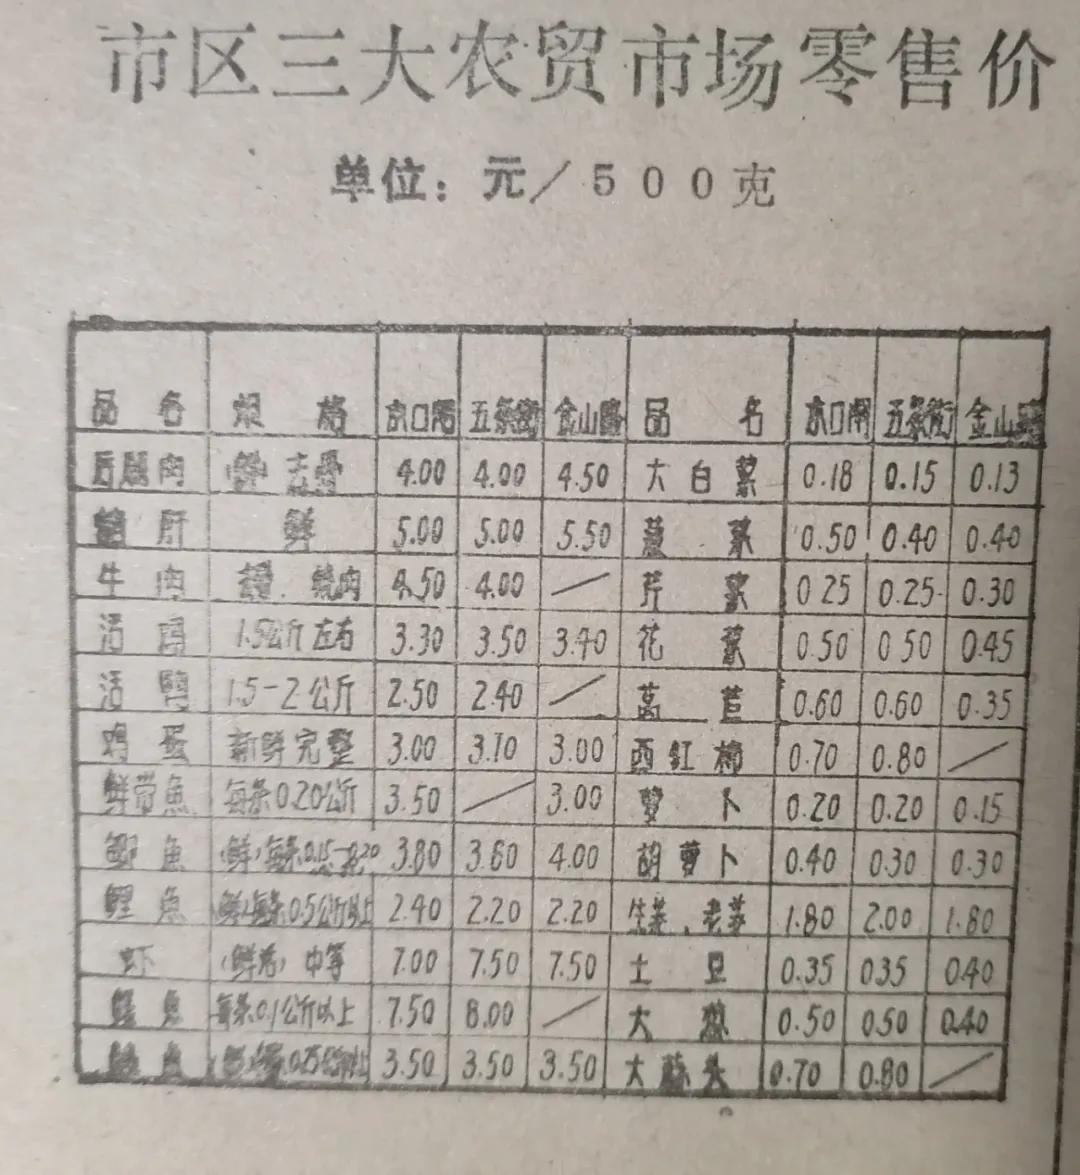 市区三大农贸市场零售价
单位：元／500克
品名 规格 京口闸 五条街 金山路 品名 京口闸 五条街 金山路
后腿肉 (鲜)去骨 4.00 4.00 4.50 大白菜 0.18 0.15 0.13
肝 鲜 5.00 5.00 5.50 菜 0.50 0.40 0.40
牛肉 肉 4.50 4.00 ／ 芹菜 0.25 0.25 0.30
活鸡 1.5公斤左右 3.30 3.50 3.40 花菜 0.50 0.50 0.45
活鸭 1.5-2公斤 2.50 2.40 ／ 莴苣 0.60 0.60 0.35
鸡蛋 新鲜完整 3.00 3.10 3.00 西红柿 0.70 0.80 ／
鲜带鱼 每条0.20公斤 3.50 ／ 3.00 萝卜 0.20 0.20 0.15
鲫鱼 (鲜)每条0.15-0.20 3.80 3.60 4.00 胡萝卜 0.40 0.30 0.30
鲤鱼 (鲜)每条0.5公斤以上 2.40 2.20 2.20 生姜、老姜 1.80 2.00 1.80
虾 (鲜活)中等 7.00 7.50 7.50 土豆 0.35 0.35 0.40
鱼 每条0.1公斤以上 7.50 8.00 ／ 大葱 0.50 0.50 0.40
鱼 3.50 3.50 3.50 大蒜头 0.70 0.80 ／